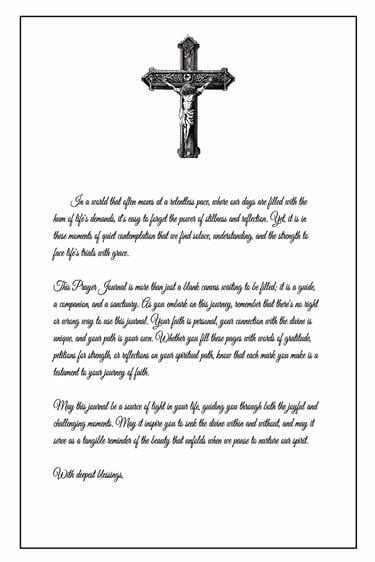 In a world that often moves at a relentless pace, where our days are filled with the
hum of life's demands, it's easy to forget the power of stillness and reflection. Yet, it is in
these moments of quiet contemplation that we find solace, understanding, and the strength to
face life's trials with grace.
This Prayer Journal is more than just a blank canvas waiting to be filled; it is a guide,
a companion, and a sanctuary. As you embark on this journey, remember that there's no right
or wrong way to use this journal. Your faith is personal, your connection with the divine is
unique, and your path is your own. Whether you fill these pages with words of gratitude,
petitions for strength, or reflections on your spiritual path, know that each mark you make is a
testament to your journey of faith.
May this journal be a source of light in your life, guiding you through both the joyful and
challenging moments. May it inspire you to seek the divine within and without, and may it
serve as a tangible reminder of the beauty that unfolds when we pause to nurture our spirit.
With deepest blessings,